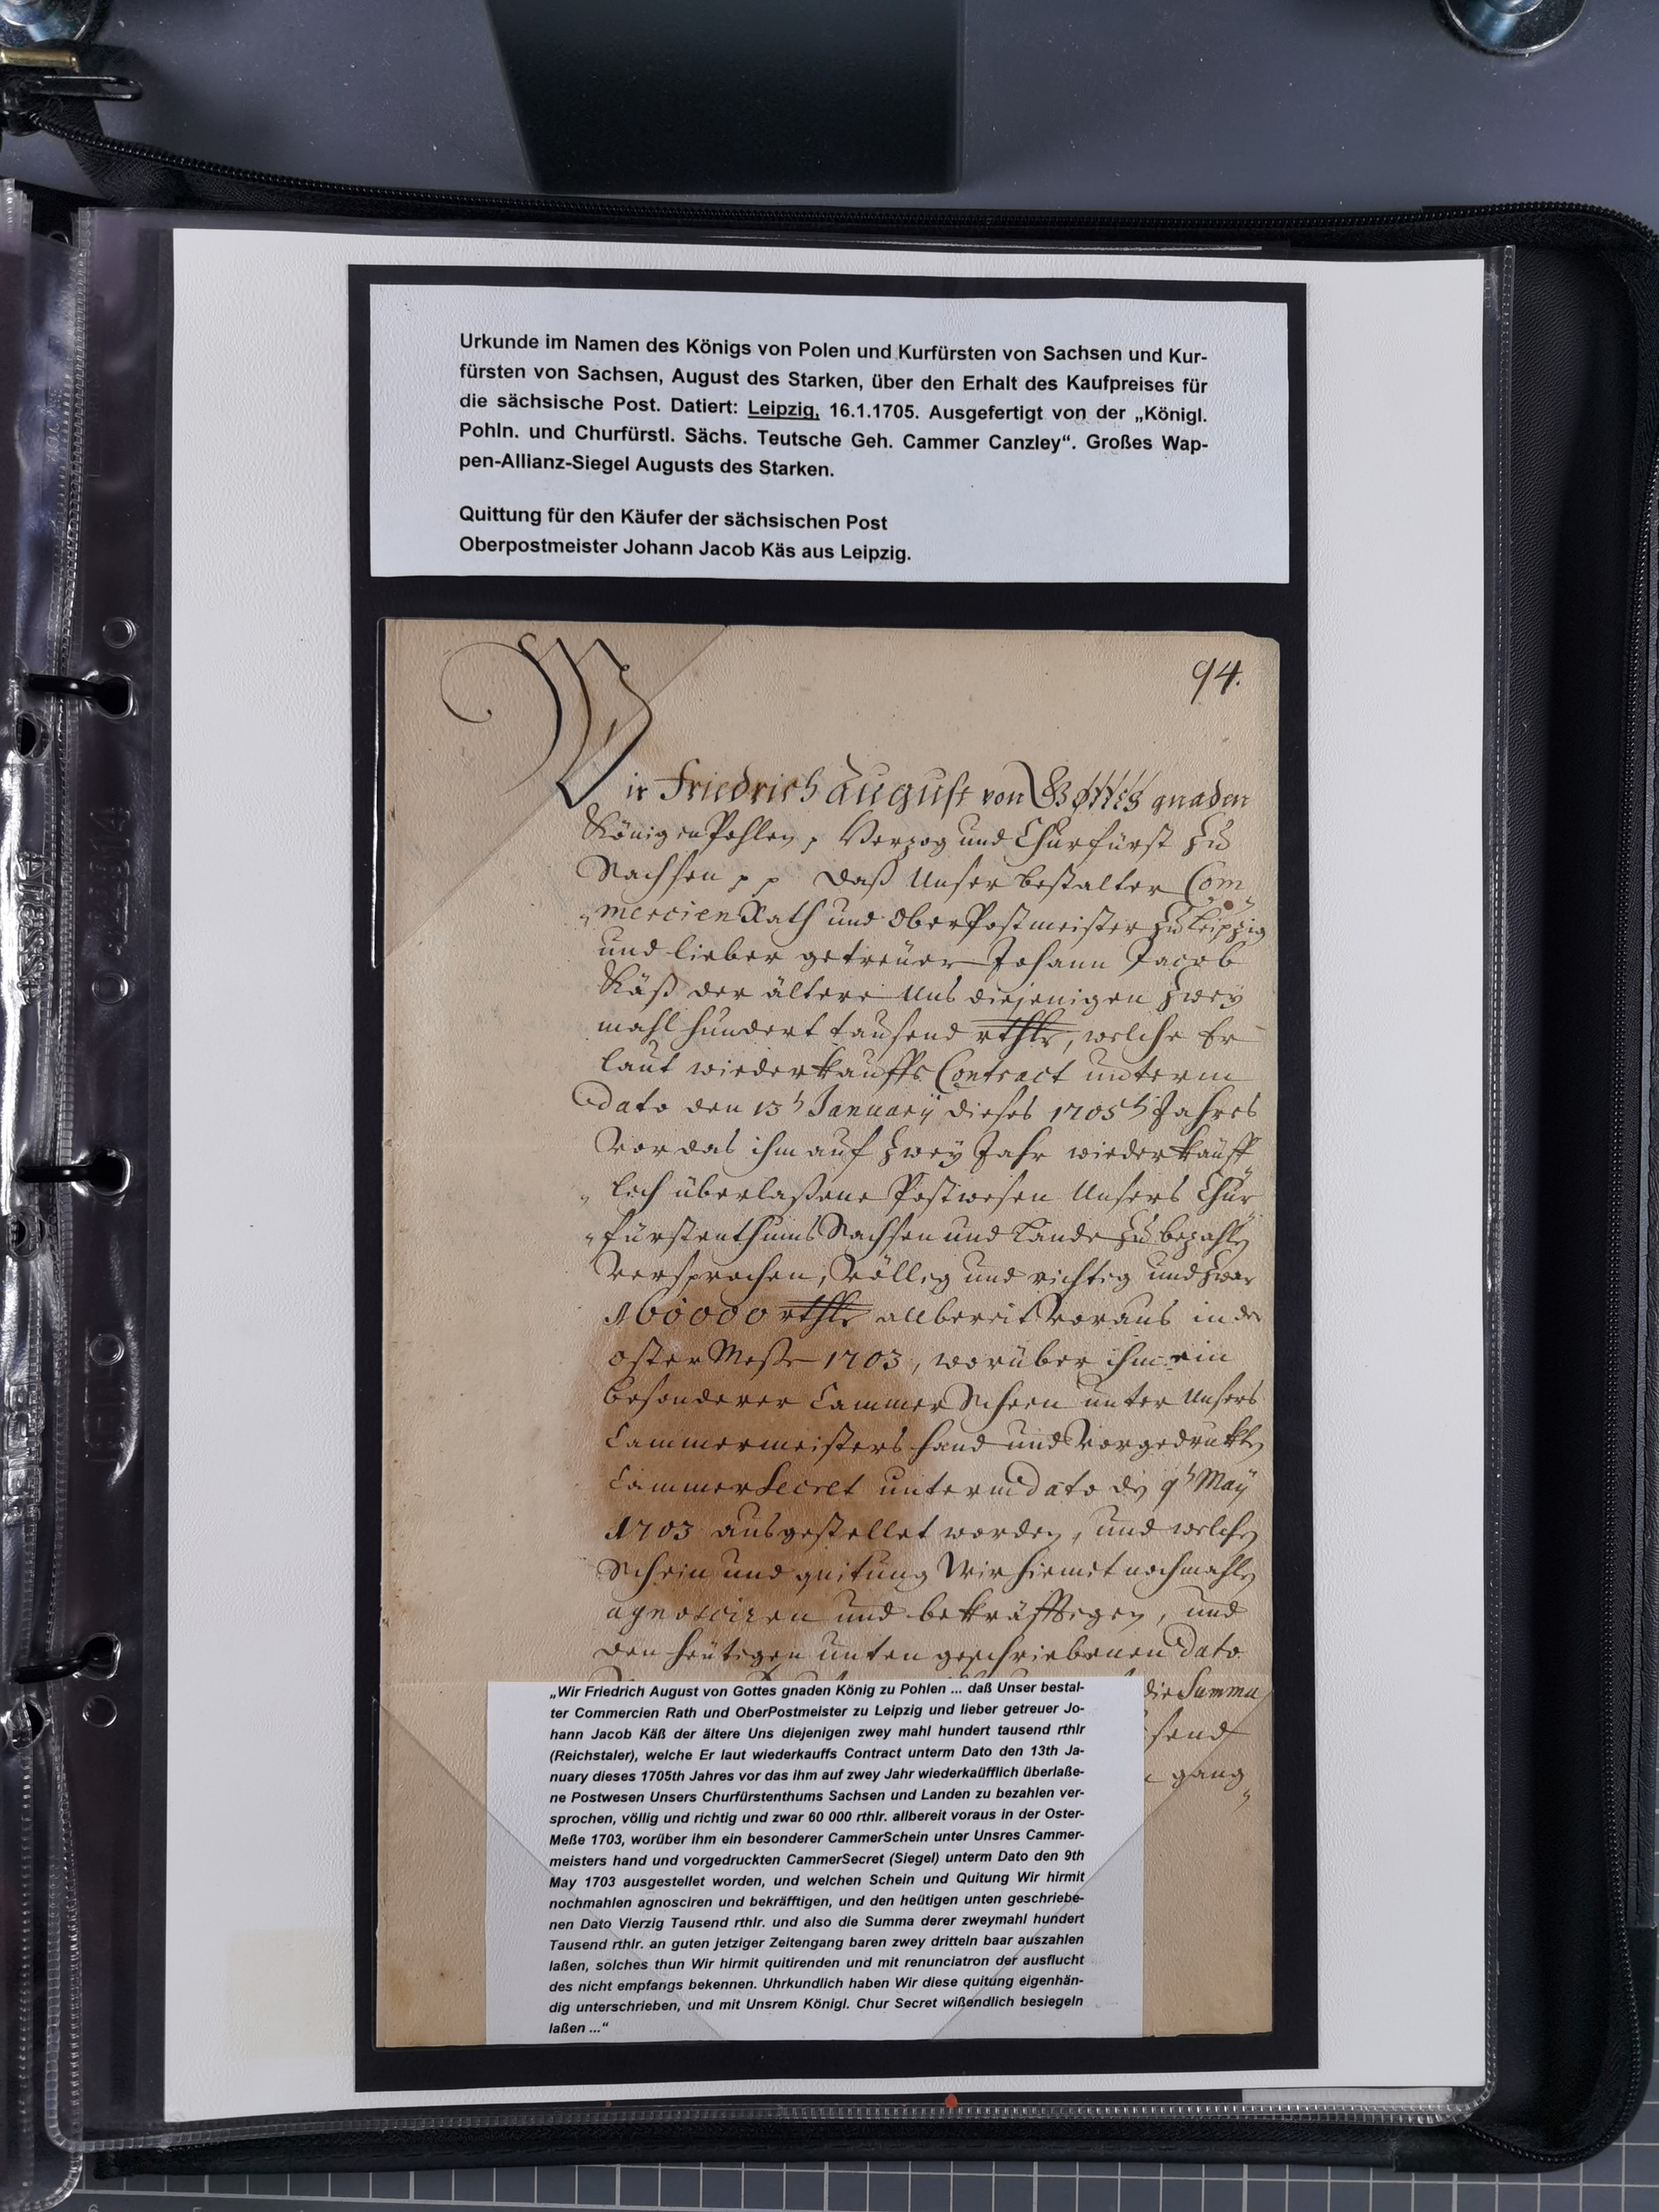 Urkunde im Namen des Königs von Polen und Kurfürsten von Sachsen und Kur-
fürsten von Sachsen, August des Starken, über den Erhalt des Kaufpreises für
die sächsische Post. Datiert: Leipzig, 16.1.1705. Ausgefertigt von der „Königl.
Pohln. und Churfürstl. Sächs. Teutsche Geh. Cammer Canzley“. Großes Wap-
pen-Allianz-Siegel Augusts des Starken.
Quittung für den Käufer der sächsischen Post
Oberpostmeister Johann Jacob Käs aus Leipzig.
94.
Wir Friedrich August von Gottes gnaden
König in Pohlen, Herzog und Churfürst zu
Sachsen p p daß Unser bestalter Com
mercien Rath und OberPostmeister zu Leipzig
und lieber getreüer Johann Jacob
Käß der ältere Uns diejenigen zwey
mahl hundert tausend rthlr, welche Er
laut wiederkauffs Contract unterm
dato den 13h January dieses 1705h Jahres
vor das ihm auf zwey Jahr wiederkäuff
lich überlaßene Postwesen Unsers Chur
fürstenthums Sachsen und Lande zu bezahlen
versprochen, völlig und richtig und zwar
160000 rthlr allbereit voraus in der
Oster Meße 1703, worüber ihm ein
besonderer Cammer Schein unter Unsers
Cammermeisters hand und vorgedrukten
Cammer Secret unterm dato den 9h May
1703 ausgestellet worden, und welchen
Schein und quitung Wir hiemit nochmahlen
agnosciren und bekräfftigen, und
den heütigen unten geschriebenen dato
die Summa
send
gang
„Wir Friedrich August von Gottes gnaden König zu Pohlen ... daß Unser bestal-
ter Commercien Rath und OberPostmeister zu Leipzig und lieber getreuer Jo-
hann Jacob Käß der ältere Uns diejenigen zwey mahl hundert tausend rthlr
(Reichstaler), welche Er laut wiederkauffs Contract unterm Dato den 13th Ja-
nuary dieses 1705th Jahres vor das ihm auf zwey Jahr wiederkaüfflich überlaße-
ne Postwesen Unsers Churfürstenthums Sachsen und Landen zu bezahlen ver-
sprochen, völlig und richtig und zwar 60 000 rthlr. allbereit voraus in der Oster-
Meße 1703, worüber ihm ein besonderer CammerSchein unter Unsres Cammer-
meisters hand und vorgedruckten CammerSecret (Siegel) unterm Dato den 9th
May 1703 ausgestellet worden, und welchen Schein und Quitung Wir hirmit
nochmahlen agnosciren und bekräfftigen, und den heütigen unten geschriebe-
nen Dato Vierzig Tausend rthlr. und also die Summa derer zweymahl hundert
Tausend rthlr. an guten jetziger Zeitengang baren zwey dritteln baar auszahlen
laßen, solches thun Wir hirmit quitirenden und mit renunciatron der ausflucht
des nicht empfangs bekennen. Uhrkundlich haben Wir diese quitung eigenhän-
dig unterschrieben, und mit Unsrem Königl. Chur Secret wißendlich besiegeln
laßen ...“